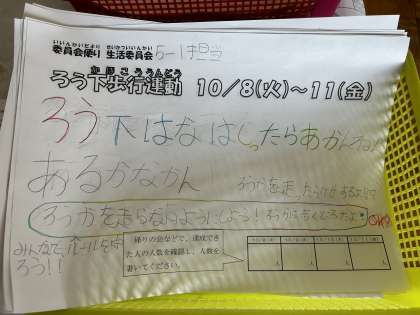 いいんかいだより せいかついいんかい
委員会便り 生活委員会 5-1担当
かほこううんどう
ろう下歩行運動 10/8(火)～11(金)
ろう下はなはしったらあかんねん
あるかなかん
ろうかを走
ろうかを走らないようにしよう!
OK?
みんなでルールを守
ろう!!
帰りの会などで、達成でき
た人の人数を確認し、人数を
書いてください。
人 人 人 人